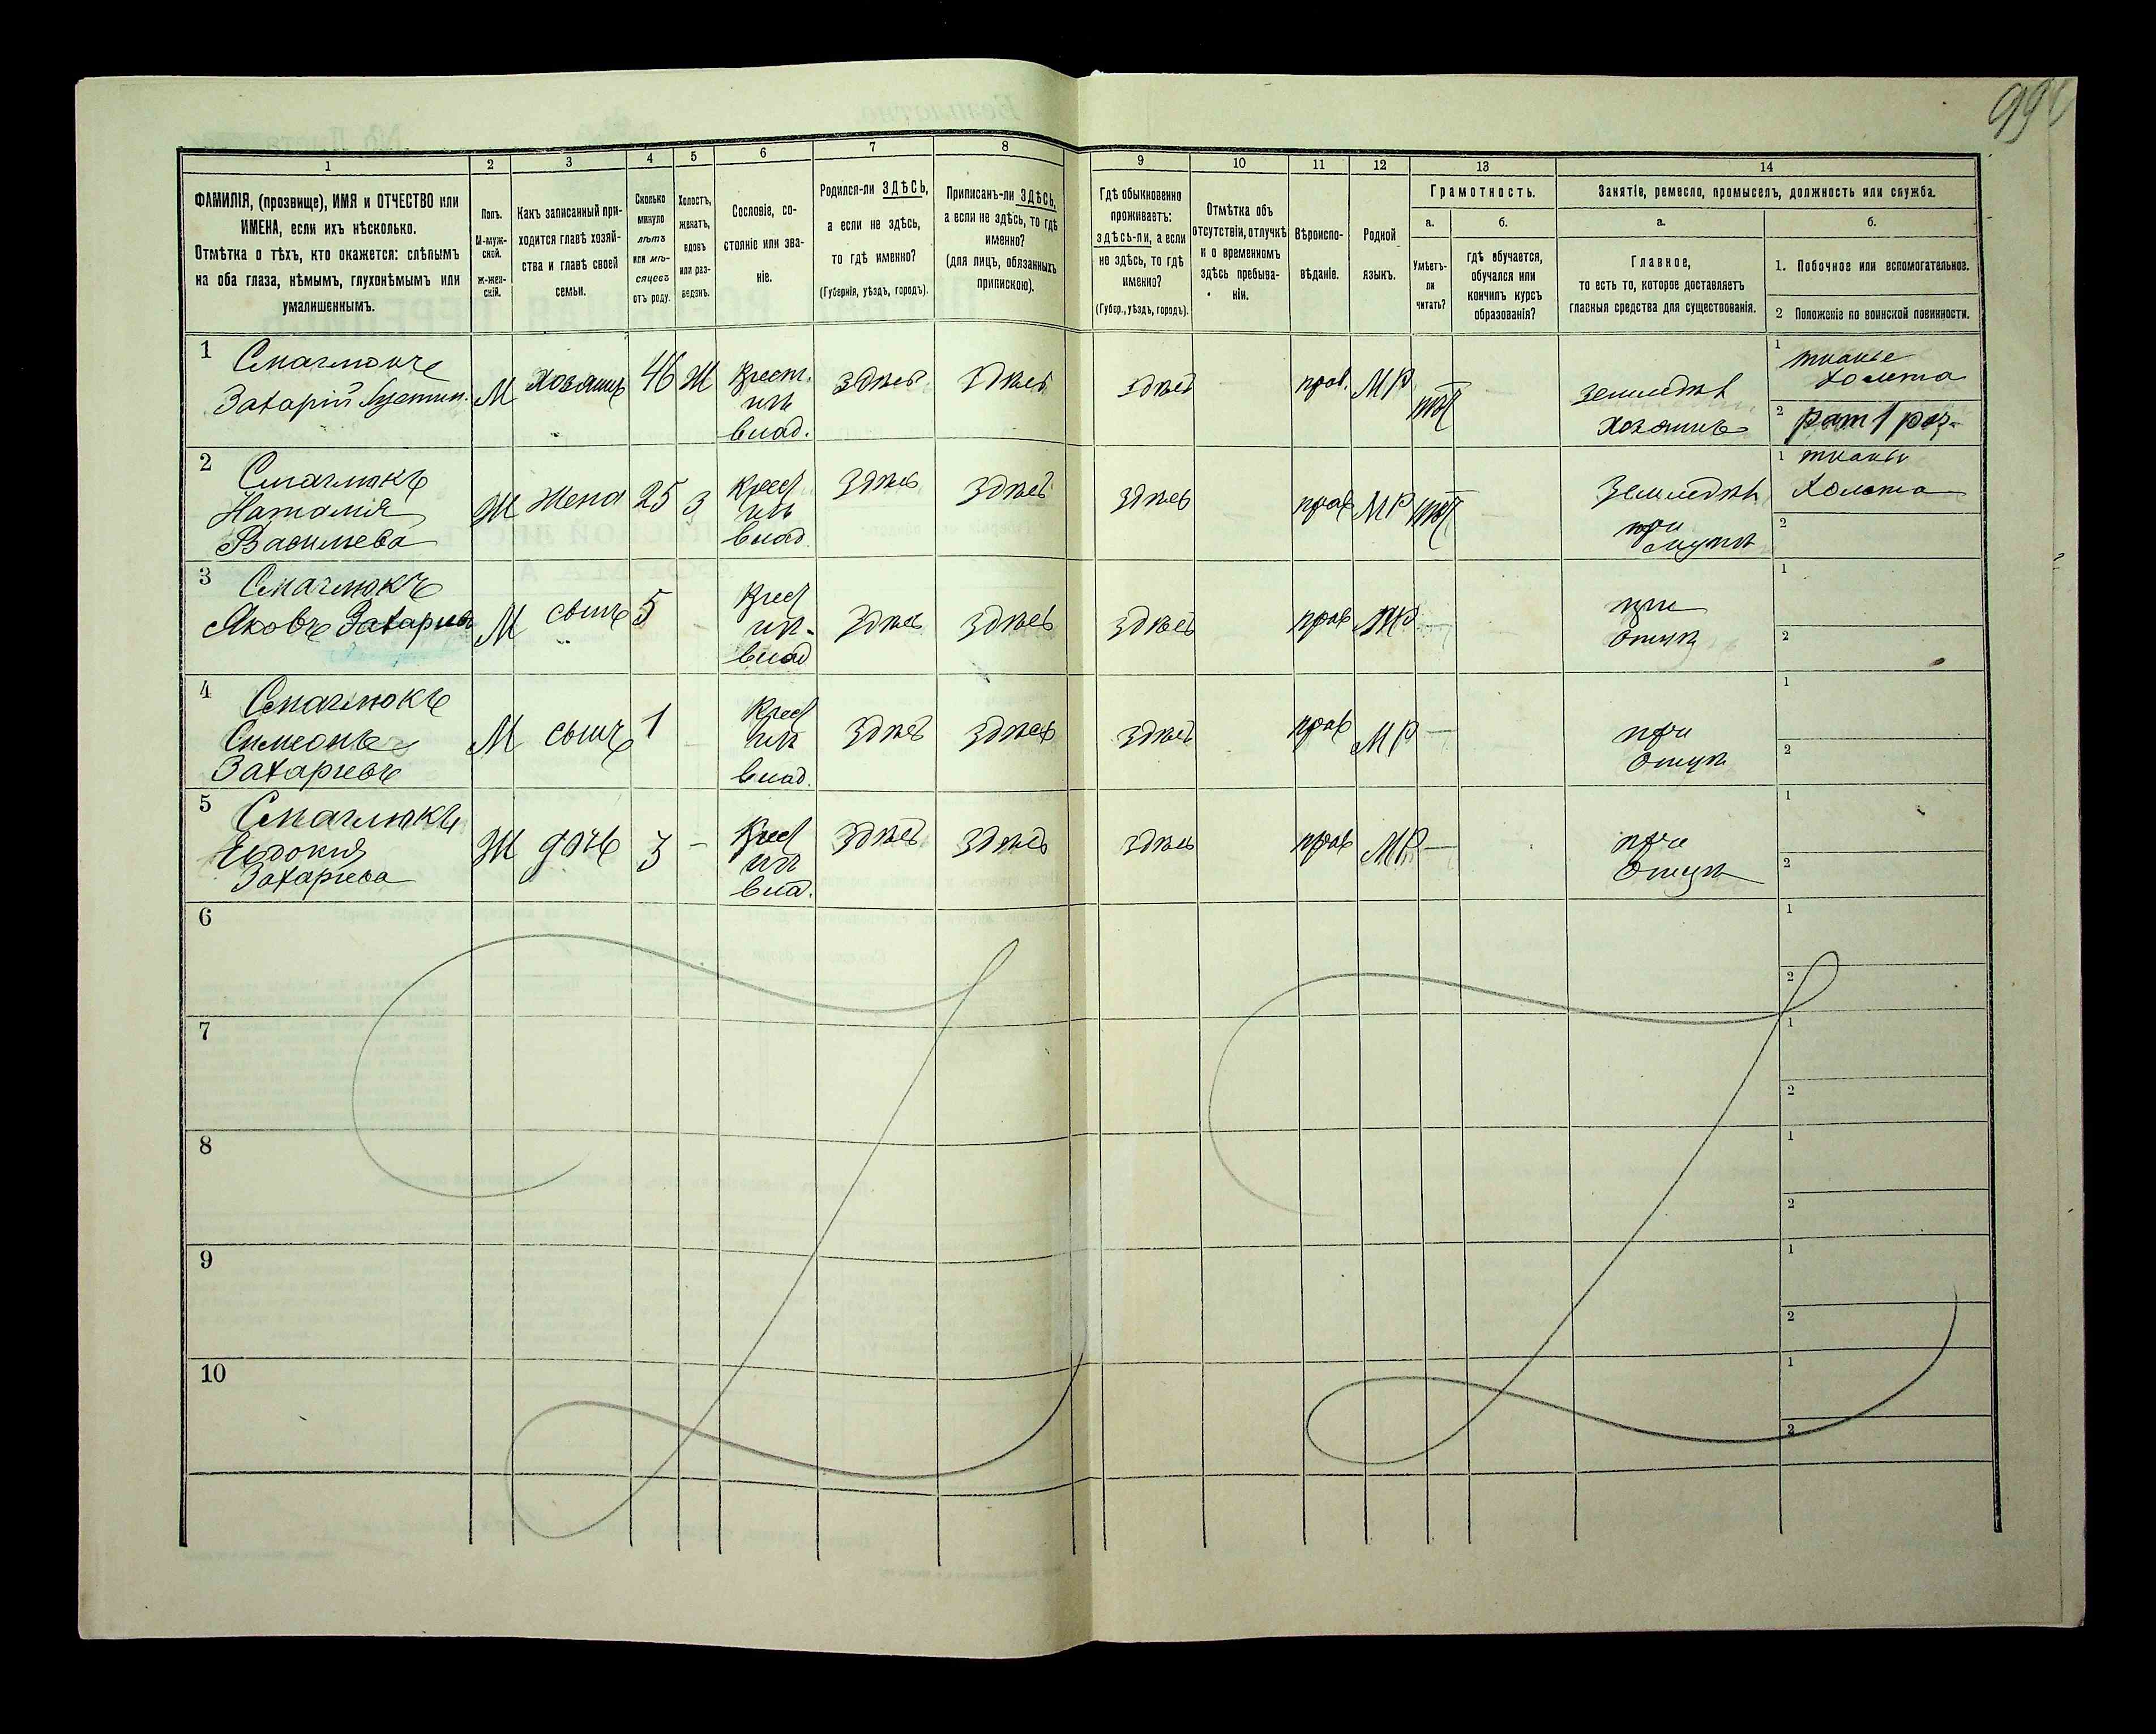 99
1 2 3 4 5 6 7 8 9 10 11 12 13 14
ФАМИЛІЯ, (прозвище), ИМЯ и ОТЧЕСТВО или
ИМЕНА, если ихъ нѣсколько.
Отмѣтка о тѣхъ, кто окажется: слѣпымъ
на оба глаза, нѣмымъ, глухонѣмымъ или
умалишеннымъ.
Полъ.
М-муж-
ской.
ж-жен-
скій.
Какъ записанный при-
ходится главѣ хозяй-
ства и главѣ своей
семьи.
Сколько
минуло
лѣтъ
или мѣ-
сяцевъ
отъ роду.
Холостъ,
женатъ,
вдовъ
или раз-
веденъ.
Сословіе, со-
стояніе или зва-
ніе.
Родился-ли ЗДѢСЬ,
а если не здѣсь,
то гдѣ именно?
(Губернія, уѣздъ, городъ).
Приписанъ-ли ЗДѢСЬ,
а если не здѣсь, то гдѣ
именно?
(для лицъ, обязанныхъ
припискою).
Гдѣ обыкновенно
проживаетъ:
здѣсь-ли, а если
не здѣсь, то гдѣ
именно?
(Губер., уѣздъ, городъ).
Отмѣтка объ
отсутствіи, отлучкѣ
и о временномъ
здѣсь пребыва-
ніи.
Вѣроиспо-
вѣданіе.
Родной
языкъ.
Грамотность.
а.
Умѣетъ-
ли
читать?
б.
гдѣ обучается,
обучался или
кончилъ курсъ
образованія?
Занятіе, ремесло, промыселъ, должность или служба.
а.
Главное,
то есть то, которое доставляетъ
главныя средства для существованія.
б.
1. Побочное или вспомогательное.
2 Положеніе по воинской повинности.
1 Смаглюкъ
Захарій Іустин.
М Хозяинъ 46 Ж Крест. изъ влад. здѣсь здѣсь здѣсь прав. МР нѣт
земледѣл
хозяинъ
1 тканье
холста
2 рат 1 раз.
2 Смаглюкъ
Наталія
Васильева
Ж жена 25 З Крест изъ влад здѣсь здѣсь здѣсь прав МР нѣт
земледѣл
при
мужѣ
1 тканье
холста
2
3 Смаглюкъ
Яковъ Захарьевъ
М сынъ 5 - Крест изъ влад здѣсь здѣсь здѣсь прав МР —
при
отцѣ
1
2
4 Смаглюкъ
Симеонъ
Захарьевъ
М сынъ 1 - Крест изъ влад. здѣсь здѣсь здѣсь прав МР —
при
отцѣ
1
2
5 Смаглюкъ
Евдокия
Захарьева
Ж дочь 3 - Крест изъ влад. здѣсь здѣсь здѣсь прав МР —
при
отцѣ
1
2
6
1
2
7
1
2
8
1
2
9
1
2
10
1
2